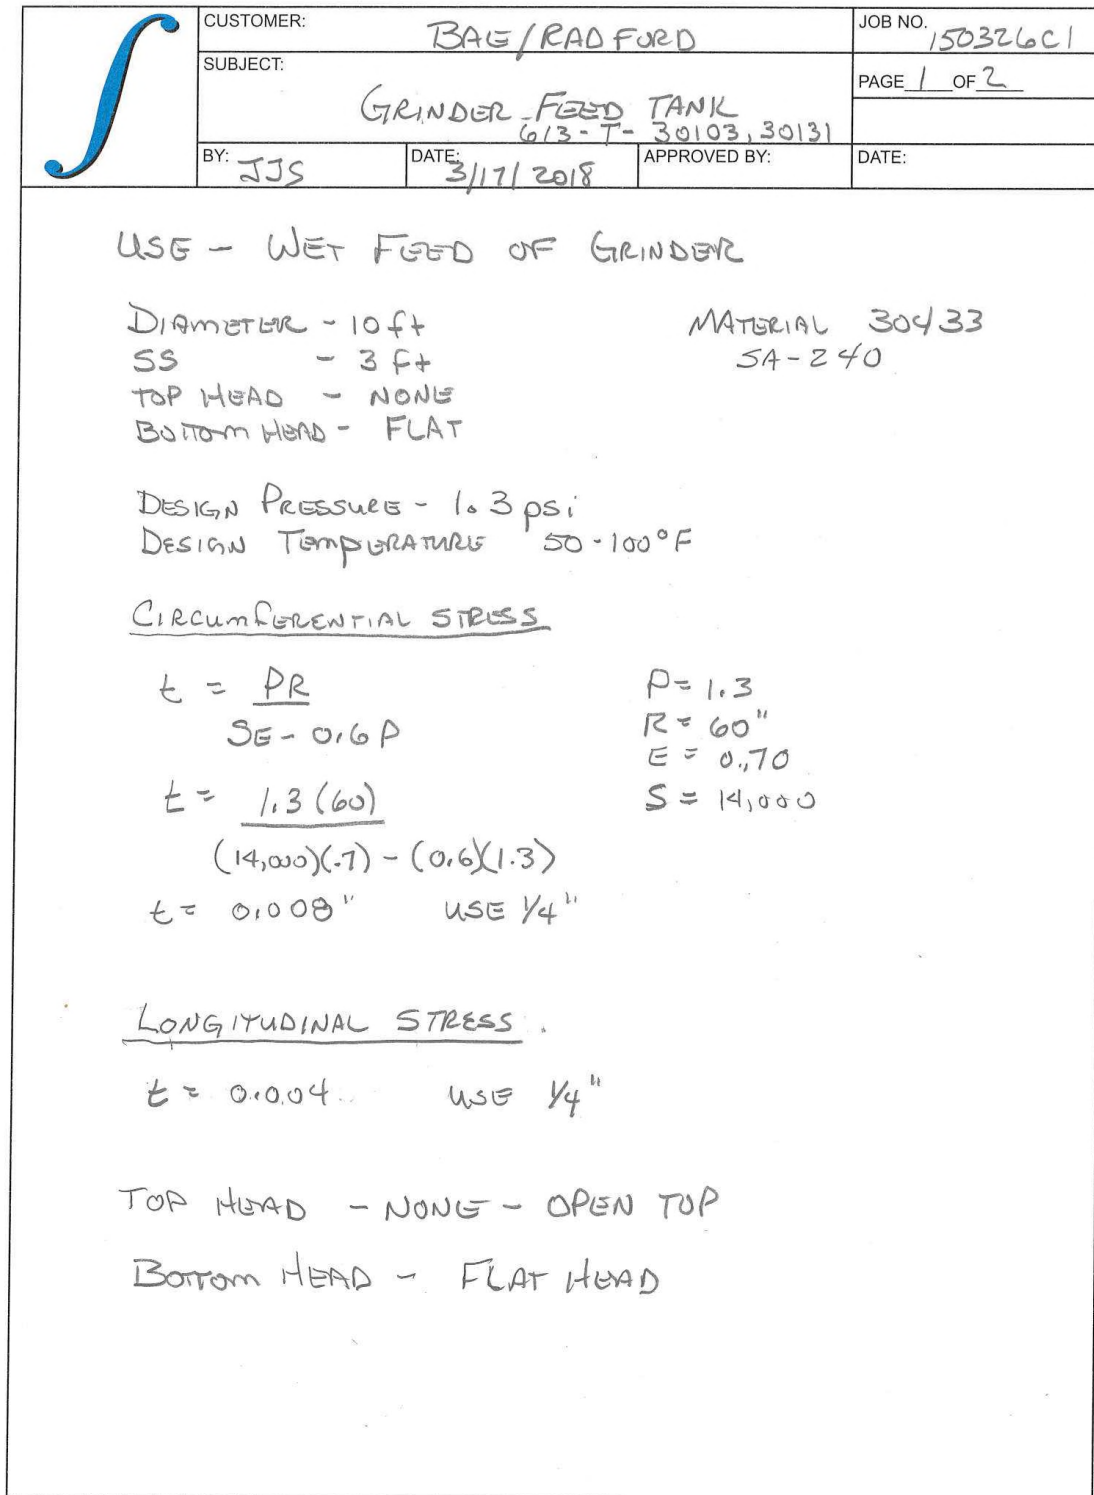 CUSTOMER: BAE/RADFORD
JOB NO. 150326C1
SUBJECT:
PAGE 1 OF 2
GRINDER FEED TANK
613-T-30103, 30131
BY: JJS
DATE: 3/17/2018
APPROVED BY:
DATE:
USE - WET FEED OF GRINDER
DIAMETER - 10 ft
MATERIAL 304/33
SS - 3 ft
SA-240
TOP HEAD - NONE
BOTTOM HEAD - FLAT
DESIGN PRESSURE - 1.3 psi
DESIGN TEMPERATURE 50-100°F
CIRCUMFERENTIAL STRESS
t = PR
SE - 0.6P
P = 1.3
R = 60"
E = 0.70
S = 14,000
t = 1.3 (60)
(14,000)(.7) - (0.6)(1.3)
t = 0.008" USE 1/4"
LONGITUDINAL STRESS.
t = 0.004 USE 1/4"
TOP HEAD - NONE - OPEN TOP
BOTTOM HEAD - FLAT HEAD